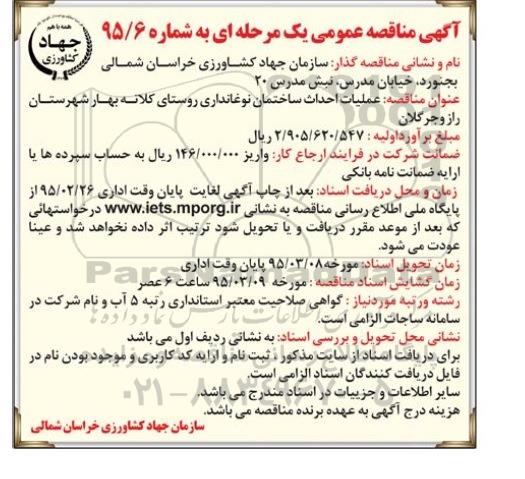 همه با هم
جهاد
کشاورزی
آگهی مناقصه عمومی یک مرحله ای به شماره ۹۵/۶
نام و نشانی مناقصه گذار: سازمان جهاد کشاورزی خراسان شمالی
بجنورد، خیابان مدرس، نبش مدرس ۲۰
عنوان مناقصه: عملیات احداث ساختمان نوغانداری روستای کلاته بهار شهرستان
رازوجرگلان
مبلغ برآورداولیه : ۲/۹۰۵/۶۲۰/۵۴۷ ریال
ضمانت شرکت در فرایند ارجاع کار: واریز ۱۴۶/۰۰۰/۰۰۰ ریال به حساب سپرده ها یا
ارایه ضمانت نامه بانکی
زمان و محل دریافت اسناد: بعد از چاپ آگهی لغایت پایان وقت اداری ۹۵/۰۲/۲۶ از
پایگاه ملی اطلاع رسانی مناقصه به نشانی www.iets.mporg.ir درخواستهائی
که بعد از موعد مقرر دریافت و یا تحویل شود ترتیب اثر داده نخواهد شد و عینا
عودت می شود.
زمان تحویل اسناد: مورخه ۹۵/۰۳/۰۸ پایان وقت اداری
زمان گشایش اسناد مناقصه : مورخه ۹۵/۰۳/۰۹ ساعت ۶ عصر
رشته ورتبه موردنیاز : گواهی صلاحیت معتبر استانداری رتبه ۵ آب و نام شرکت در
سامانه ساجات الزامی است.
نشانی محل تحویل و بررسی اسناد: به نشانی ردیف اول می باشد
برای دریافت اسناد از سایت مذکور ، ثبت نام و ارایه کد کاربری و موجود بودن نام در
فایل دریافت کنندگان اسناد الزامی است.
سایر اطلاعات و جزییات در اسناد مندرج می باشد.
هزینه درج آگهی به عهده برنده مناقصه می باشد.
سازمان جهاد کشاورزی خراسان شمالی